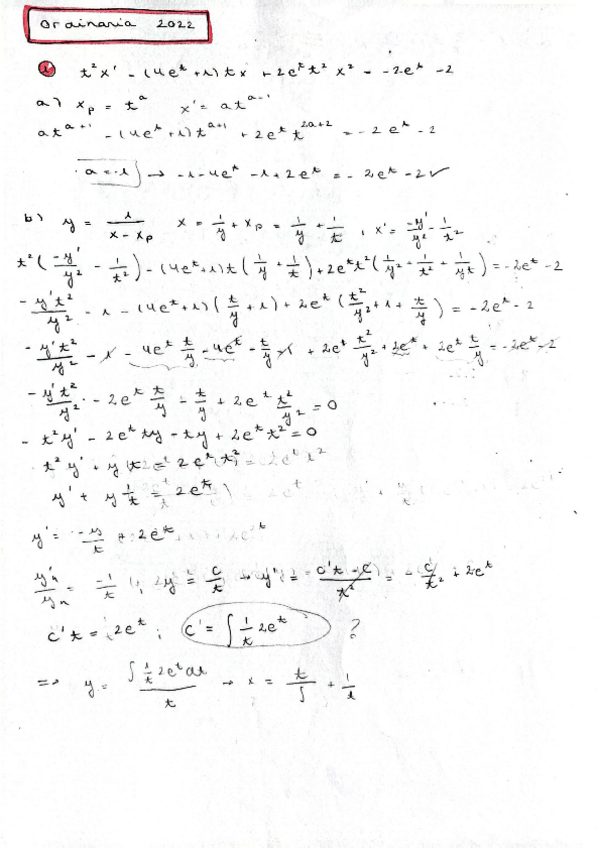 Ordinaria 2022
1 t²x' - (4e^t + 1)tx + 2e^t t² x² = -2e^t - 2
a) x_p = t^a x' = at^{a-1}
at^{a+1} - (4e^t + 1)t^{a+1} + 2e^t t^{2a+2} = -2e^t - 2
a = -1 → -1 - 4e^t - 1 + 2e^t = -2e^t - 2 ✓
b) y = 1/(x - x_p) x = 1/y + x_p = 1/y + 1/t , x' = -y'/y² - 1/t²
t²(-y'/y² - 1/t²) - (4e^t + 1)t(1/y + 1/t) + 2e^t t²(1/y² + 1/t² + 1/yt) = -2e^t - 2
- y't²/y² - 1 - (4e^t + 1)(t/y + 1) + 2e^t(t²/y² + 1 + t/y) = -2e^t - 2
- y't²/y² - 1 - 4e^t t/y - 4e^t - t/y - 1 + 2e^t t²/y² + 2e^t + 2e^t t/y = -2e^t - 2
- y't²/y² - 2e^t t/y - t/y + 2e^t t²/y² = 0
- t²y' - 2e^t ty - ty + 2e^t t² = 0
t²y' + y(t = 2e^t t²
y' + y 1/t = 2e^t
y' = -y/t + 2e^t
y'_h/y_h = -1/t ; y = c/t → y' = (c't - c)/t² = -c/t² + 2e^t
c't = 2e^t ; c' = ∫ 1/t 2e^t ?
⇒ y = (∫ 1/t 2e^t dt)/t → x = t/∫ + 1/t